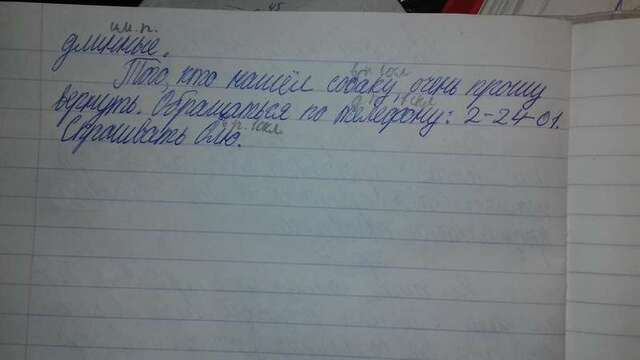 45
им.п.
длинные.
в.п. 1скл
Того, кто нашёл собаку, очень прошу
д.п. 1скл
вернуть. Обращаться по телефону: 2-24-01.
в.п. 1скл.
Спрашивать Олю.